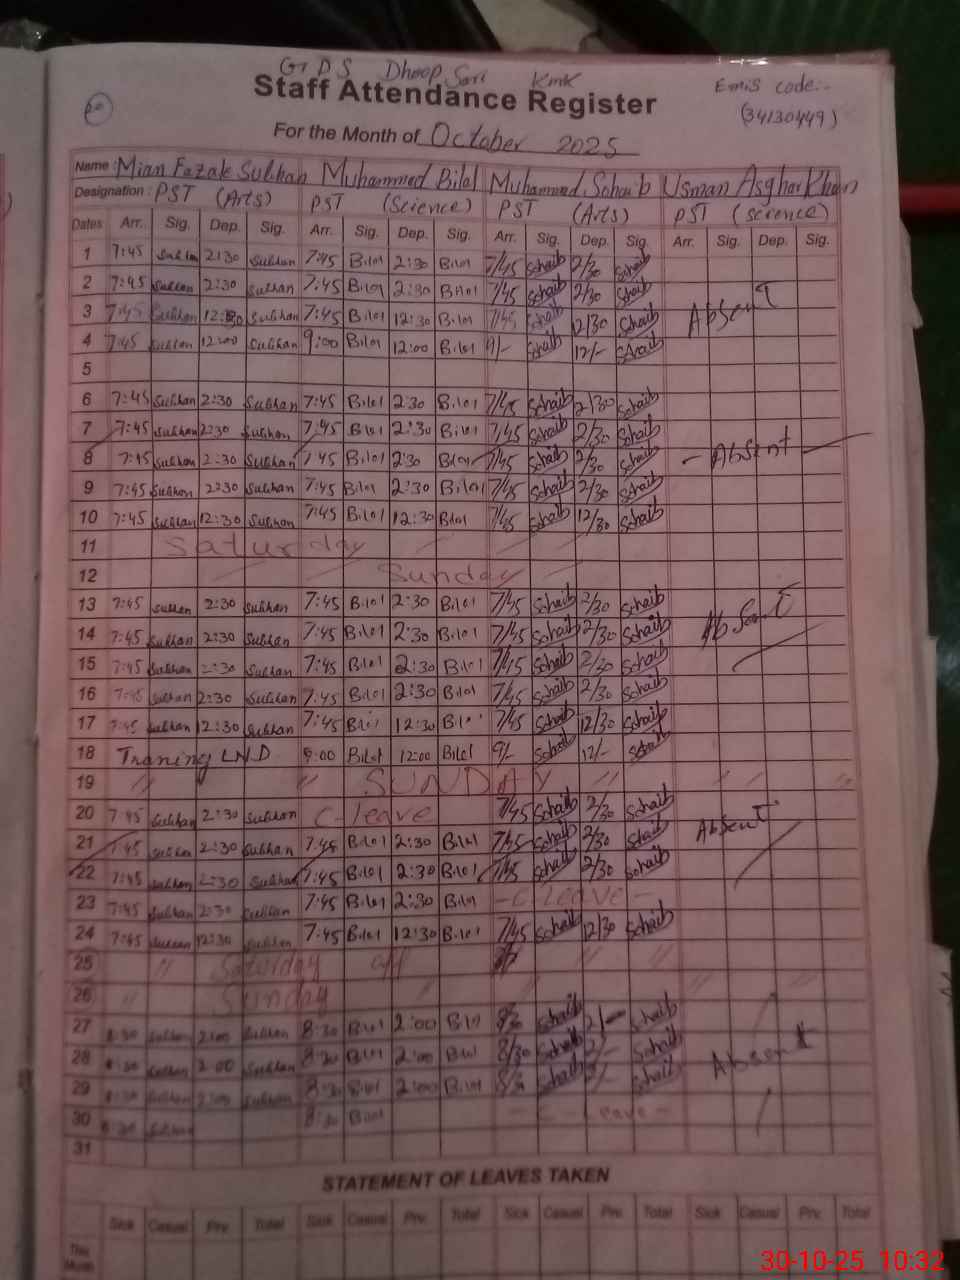 GDS Dhoop Sari KMK
Staff Attendance Register
Emis code:-
(34130449)
For the Month of October 2025
Name: Mian Fazale Subhan Muhammed Bilal Muhammed Sohaib Usman Asghar Khan
Designation: PST (Arts) PST (Science) PST (Arts) PST (science)
Dates Arr. Sig. Dep. Sig. Arr. Sig. Dep. Sig. Arr. Sig. Dep. Sig. Arr. Sig. Dep. Sig.
1 7:45 Subhan 2:30 Subhan 7:45 Bilal 2:30 Bilal 7/45 Sohaib 2/30 Sohaib
2 7:45 Subhan 2:30 Subhan 7:45 Bilal 2:30 Bilal 7/45 Sohaib 2/30 Sohaib
3 7:45 Subhan 12:30 Subhan 7:45 Bilal 12:30 Bilal 7/45 Sohaib 12/30 Sohaib Absent
4 7:45 Subhan 12:00 Subhan 9:00 Bilal 12:00 Bilal 9/- Sohaib 12/- Sohaib
5
6 7:45 Subhan 2:30 Subhan 7:45 Bilal 2:30 Bilal 7/45 Sohaib 2/30 Sohaib
7 7:45 Subhan 2:30 Subhan 7:45 Bilal 2:30 Bilal 7/45 Sohaib 2/30 Sohaib
8 7:45 Subhan 2:30 Subhan 7:45 Bilal 2:30 Bilal 7/45 Sohaib 2/30 Sohaib - Absent -
9 7:45 Subhan 2:30 Subhan 7:45 Bilal 2:30 Bilal 7/45 Sohaib 2/30 Sohaib
10 7:45 Subhan 12:30 Subhan 7:45 Bilal 12:30 Bilal 7/45 Sohaib 12/30 Sohaib
11 Saturday
12 Sunday
13 7:45 Subhan 2:30 Subhan 7:45 Bilal 2:30 Bilal 7/45 Sohaib 2/30 Sohaib
14 7:45 Subhan 2:30 Subhan 7:45 Bilal 2:30 Bilal 7/45 Sohaib 2/30 Sohaib Absent
15 7:45 Subhan 2:30 Subhan 7:45 Bilal 2:30 Bilal 7/45 Sohaib 2/30 Sohaib
16 7:45 Subhan 2:30 Subhan 7:45 Bilal 2:30 Bilal 7/45 Sohaib 2/30 Sohaib
17 7:45 Subhan 12:30 Subhan 7:45 Bilal 12:30 Bilal 7/45 Sohaib 12/30 Sohaib
18 Traning LND 9:00 Bilal 12:00 Bilal 9/- Sohaib 12/- Sohaib
19 " " SUNDAY " " "
20 7:45 Subhan 2:30 Subhan C-leave 7/45 Sohaib 2/30 Sohaib Absent
21 7:45 Subhan 2:30 Subhan 7:45 Bilal 2:30 Bilal 7/45 Sohaib 2/30 Sohaib
22 7:45 Subhan 2:30 Subhan 7:45 Bilal 2:30 Bilal 7/45 Sohaib 2/30 Sohaib
23 7:45 Subhan 2:30 Subhan 7:45 Bilal 2:30 Bilal -C. Leave-
24 7:45 Subhan 12:30 Subhan 7:45 Bilal 12:30 Bilal 7/45 Sohaib 12/30 Sohaib
25 " Saturday off " "
26 " Sunday " "
27 8:30 Subhan 2:00 Subhan 8:30 Bilal 2:00 Bilal 8/30 Sohaib 2/- Sohaib
28 8:30 Subhan 2:00 Subhan 8:30 Bilal 2:00 Bilal 8/30 Sohaib 2/- Sohaib Absent
29 8:30 Subhan 2:00 Subhan 8:30 Bilal 2:00 Bilal 8/30 Sohaib 2/- Sohaib
30 8:30 Subhan 8:30 Bilal -C-Leave-
31
STATEMENT OF LEAVES TAKEN
Sick Casual Prv. Total Sick Casual Prv. Total Sick Casual Prv. Total Sick Casual Prv. Total
This Month
30-10-25 10:32